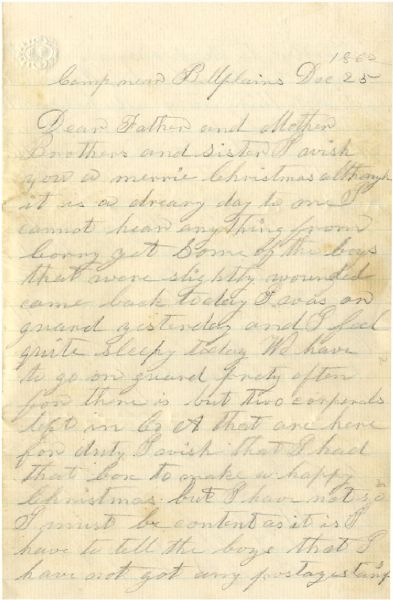 1862
Camp near B Uplains Dec 25
Dear Father and Mother
Brothers and Sister I wish
you a merrie Christmas although
it is a dreary day to me I
cannot hear anything from
Corry yet Some of the boys
that were slightly wounded
came back today I was on
guard yesterday and I feel
quite sleepy today We have
to go on guard prety often
for there is but two corperals
left in Co A that are here
for duty I wish that I had
that box to make a happy
Christmas but I have not so
I must be content as it is I
have to tell the boys that I
have not got any postage stamp